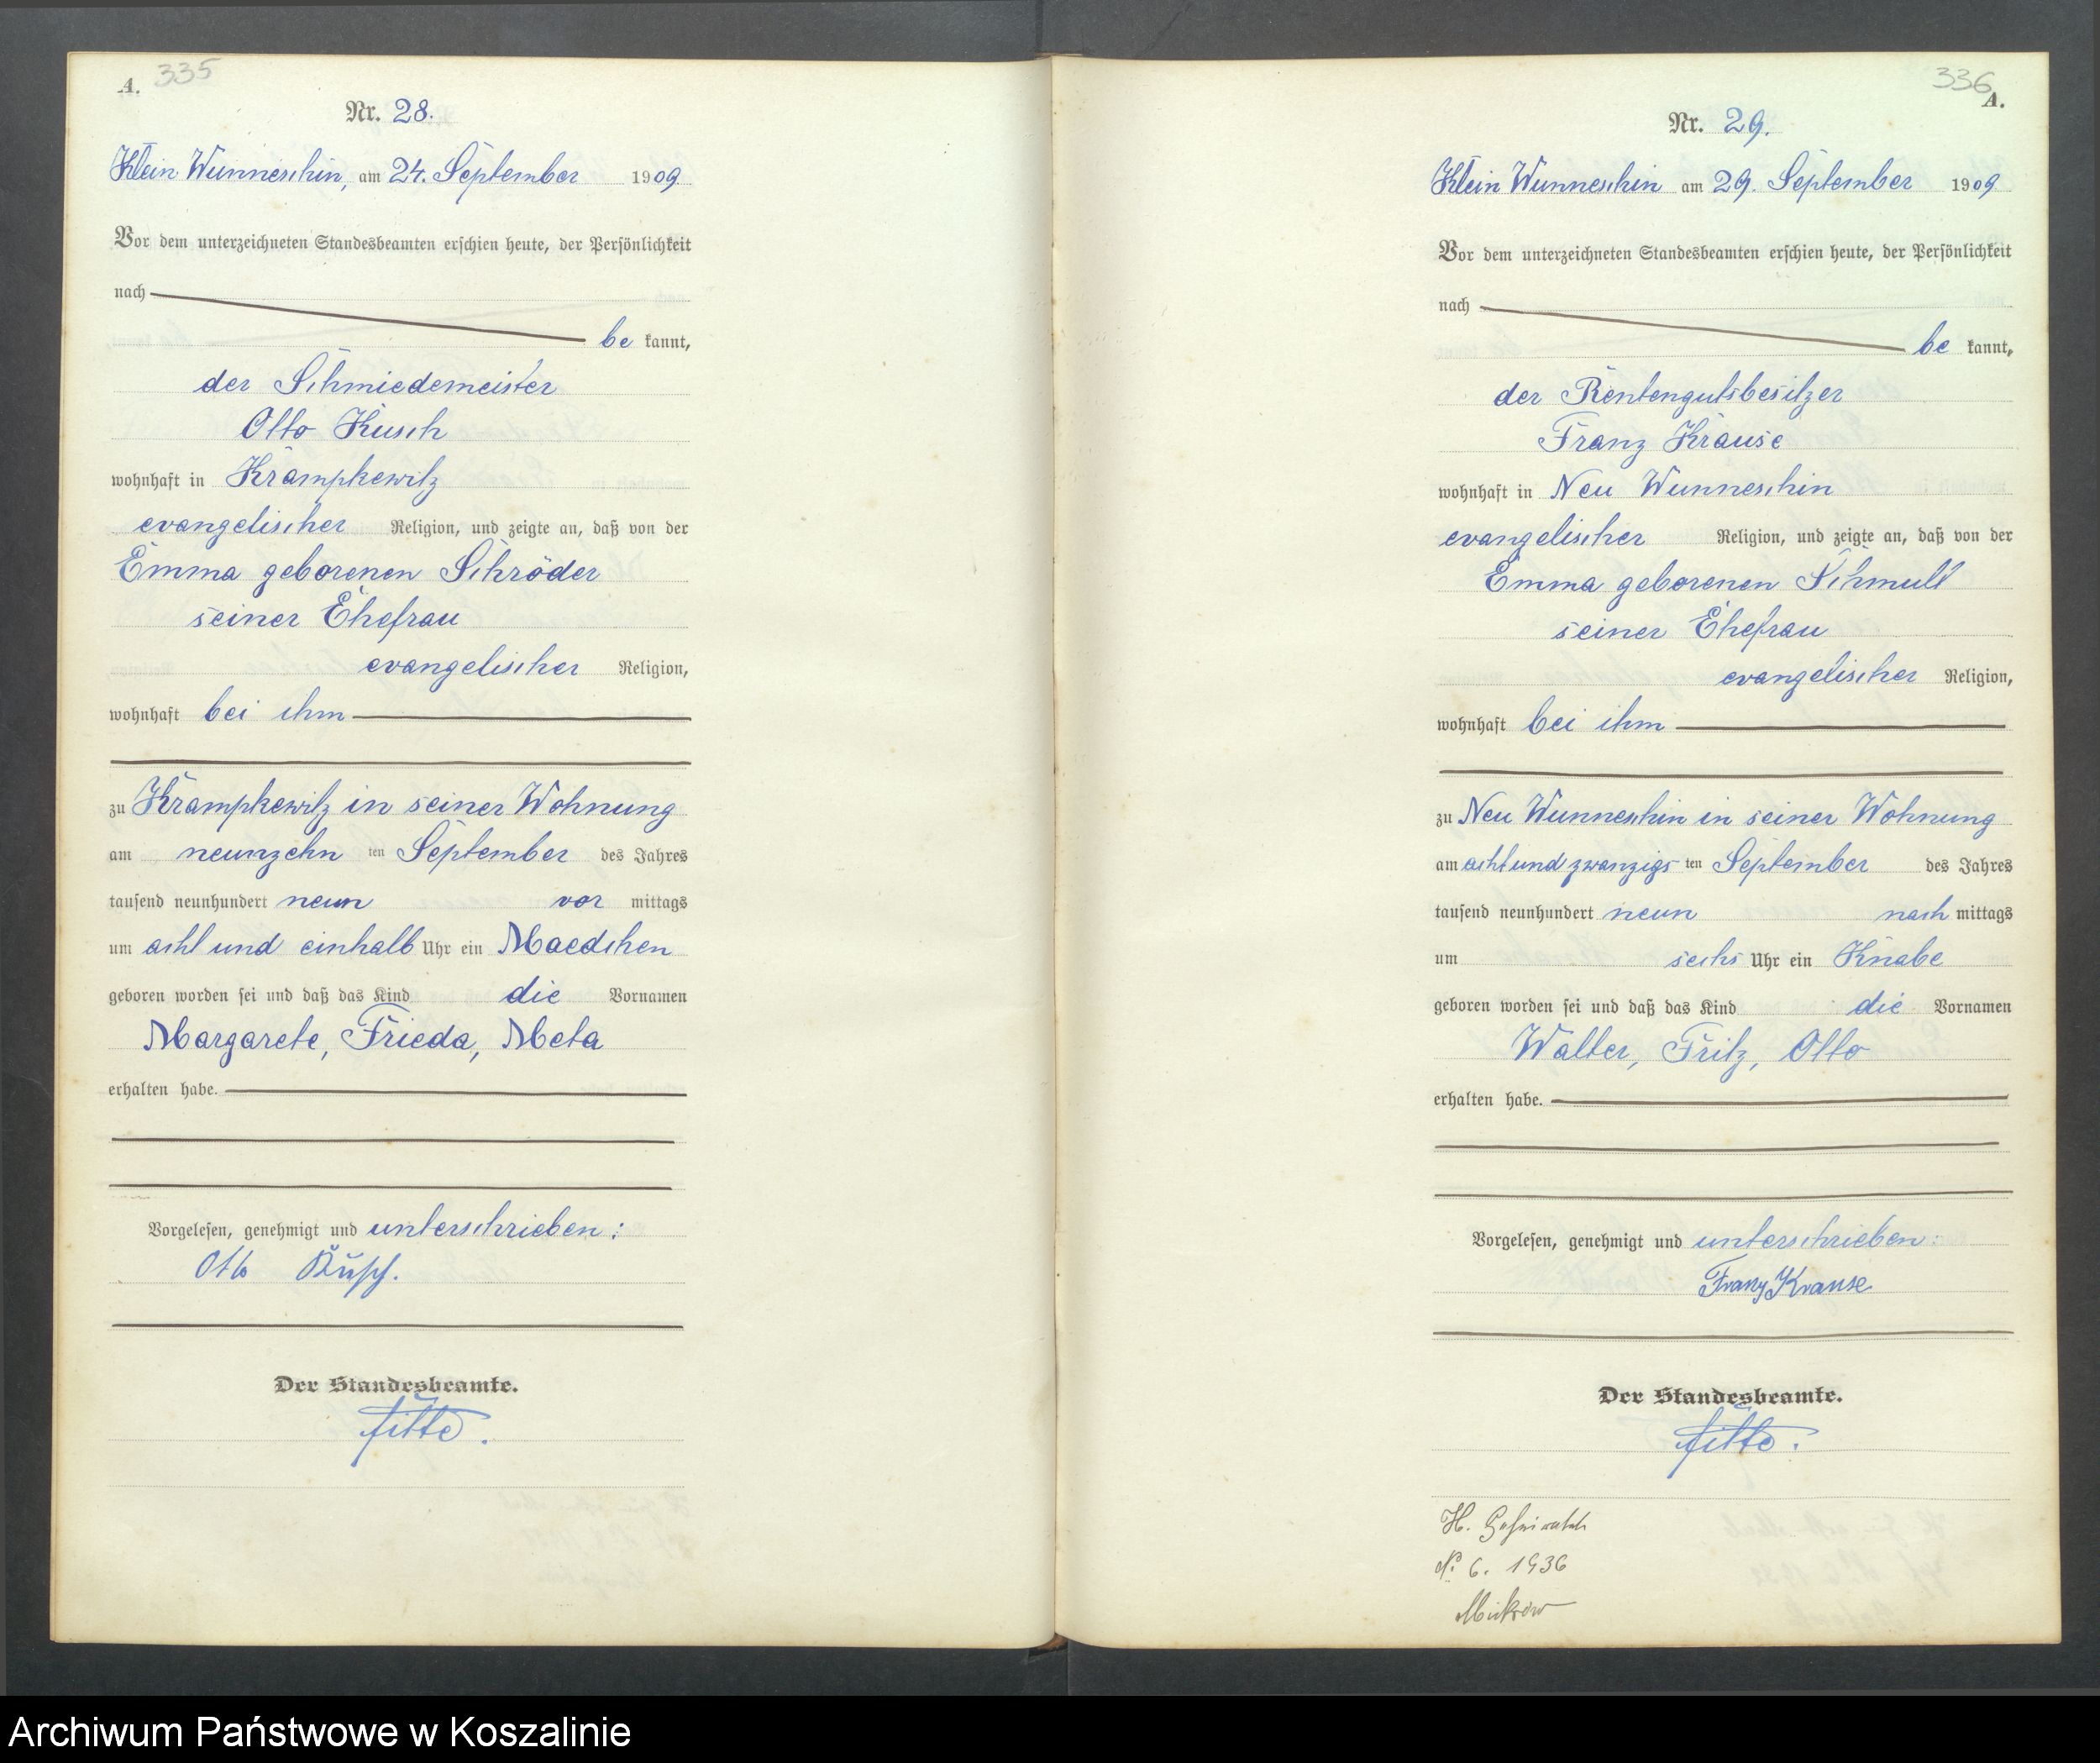 A. 335
Nr. 28.
Klein Wunneschin, am 24. September 1909
Vor dem unterzeichneten Standesbeamten erschien heute, der Persönlichkeit
nach
be kannt,
der Schmiedemeister
Otto Kusch
wohnhaft in Krampkewitz
evangelischer Religion, und zeigte an, daß von der
Emma geborenen Schröder
seiner Ehefrau
evangelischer Religion,
wohnhaft bei ihm
zu Krampkewitz in seiner Wohnung
am neunzehn ten September des Jahres
tausend neunhundert neun vor mittags
um acht und einhalb Uhr ein Maedchen
geboren worden sei und daß das Kind die Vornamen
Margarete, Frieda, Meta
erhalten habe.
Vorgelesen, genehmigt und unterschrieben:
Otto Kusch.
Der Standesbeamte.
336
A.
Nr. 29.
Klein Wunneschin am 29. September 1909
Vor dem unterzeichneten Standesbeamten erschien heute, der Persönlichkeit
nach
be kannt,
der Rentengutsbesitzer
Franz Krause
wohnhaft in Neu Wunneschin
evangelischer Religion, und zeigte an, daß von der
Emma geborenen Schmull
seiner Ehefrau
evangelischer Religion,
wohnhaft bei ihm
zu Neu Wunneschin in seiner Wohnung
am acht und zwanzigs ten September des Jahres
tausend neunhundert neun nach mittags
um sechs Uhr ein Knabe
geboren worden sei und daß das Kind die Vornamen
Walter, Fritz, Otto
erhalten habe.
Vorgelesen, genehmigt und unterschrieben:
Franz Krause
Der Standesbeamte.
H.
N. 6. 1936
Mickrow
Archiwum Państwowe w Koszalinie